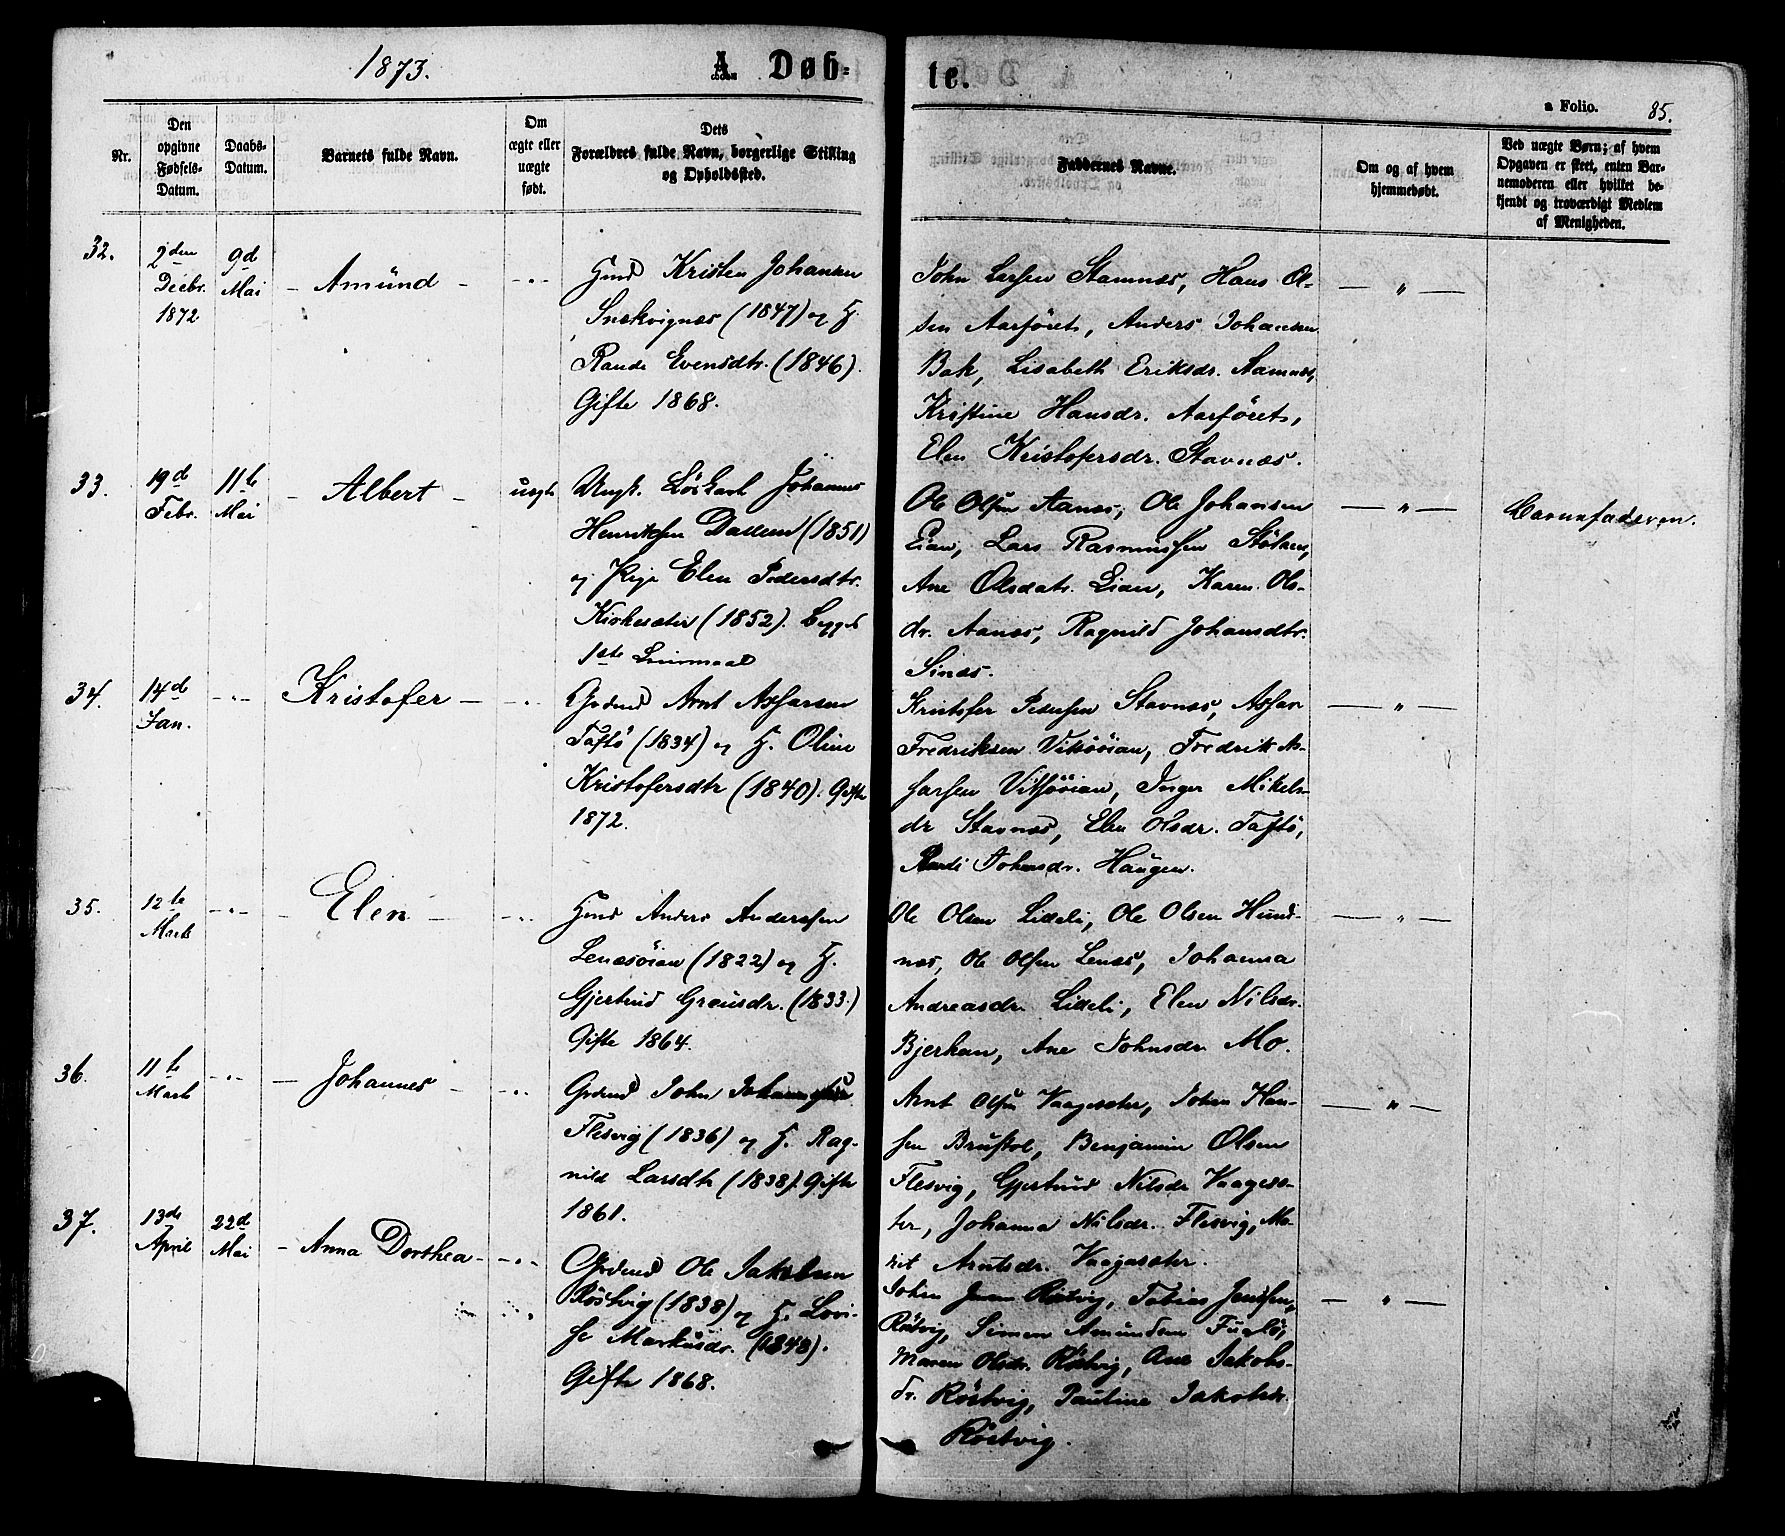 1873.
A Døb=
te.
a Folio. 85.
Nr.
Den opgivne Fødsels-Datum.
Daabs-Datum.
Barnets fulde Navn.
Om ægte eller uægte født.
Dets Forældres fulde Navn, borgerlige Stilling og Opholdssted.
Faddernes Navne.
Om og af hvem hjemmedøbt.
Ved uægte Børn; af hvem Opgaven er skeet, enten Barnemoderen eller hvilket bekjendt og troværdigt Medlem af Menigheden.
32.
2den Decbr. 1872
9d Mai
- Amund -
Kristen Johansen
Snekvignæs (1847) og H.
Rande Evensdtr. (1846).
Gifte 1868.
John Larsen Stamnæs, Hans Ol-
sen Aarføret, Anders Johansen
Bak, Lisabeth Eriksdr. Aamnæs,
Kristine Hansdr. Aarføret,
Elen Kristofersdr. Stavnæs.
33.
19d Febr.
11te Mai
- Albert -
uægte
Ungk. Løskarl Johannes
Henriksen (1851)
og Pige Elen Pedersdtr.
Kirkesæter (1852). Begges
1ste Leiermaal
Ole Olsen Aanæs, Ole Johansen
Eian, Lars Rasmussen Stølan,
Ane Olsdatr. Lian, Karen Ols-
dr. Aanæs, Ragnild Johansdtr.
Sinæs.
Barnefaderen.
34.
14d Jan.
Kristofer -
Grdmd Arnt Assarsen
Taftö (1834) og H. Oline
Kristofersdtr (1840). Gifte
1872.
Kristofer Pedersen Stavnæs, Assar
Fredriksen Viksöian, Fredrik As-
sarsen Viksöian, Inger Mikels-
dr Stavnæs, Elen Olsdr. Taftö,
Randi Johnsdr. Haugen.
35.
12te Marts
- Elen -
Anders Anderssen
Lenæsöian (1822) og H.
Gjertrud Grausdr. (1833.)
Gifte 1864.
Ole Olsen Lideli, Ole Olsen Hund-
næs, Ole Olsen Lenæs, Johanna
Andreasdr. Lideli, Elen Nilsdr.
Bjerkan, Ane Johnsdr Mo.
36.
11te Marts
- Johannes -
Grdmd John Johannessen
Flesvig (1836) og H. Rag-
nild Larsdtr (1838). Gifte
1861.
Arnt Olsen Vaagesæter, Johan Han-
sen Brustöl, Benjamin Olsen
Flesvig, Gjertrud Nilsdr Vaagesæ-
ter, Johanna Nilsdr. Flesvig, Ma-
rit Arntsdr. Vaagesæter.
37.
13de April
22d Mai
- Anna Dorthea -
Grdmd Ole Jakobsen
Röstvig (1838) og H. Lovi-
se Markusdr. (1848).
Gifte 1868.
Johan Röstvig, Tobias Jenssen,
Röstvig, Simon Amundsen Fuglö,
Maren Olsdr. Röstvig, Ane Jakobs-
dr. Röstvig, Pauline Jakobsdr.
Röstvig.